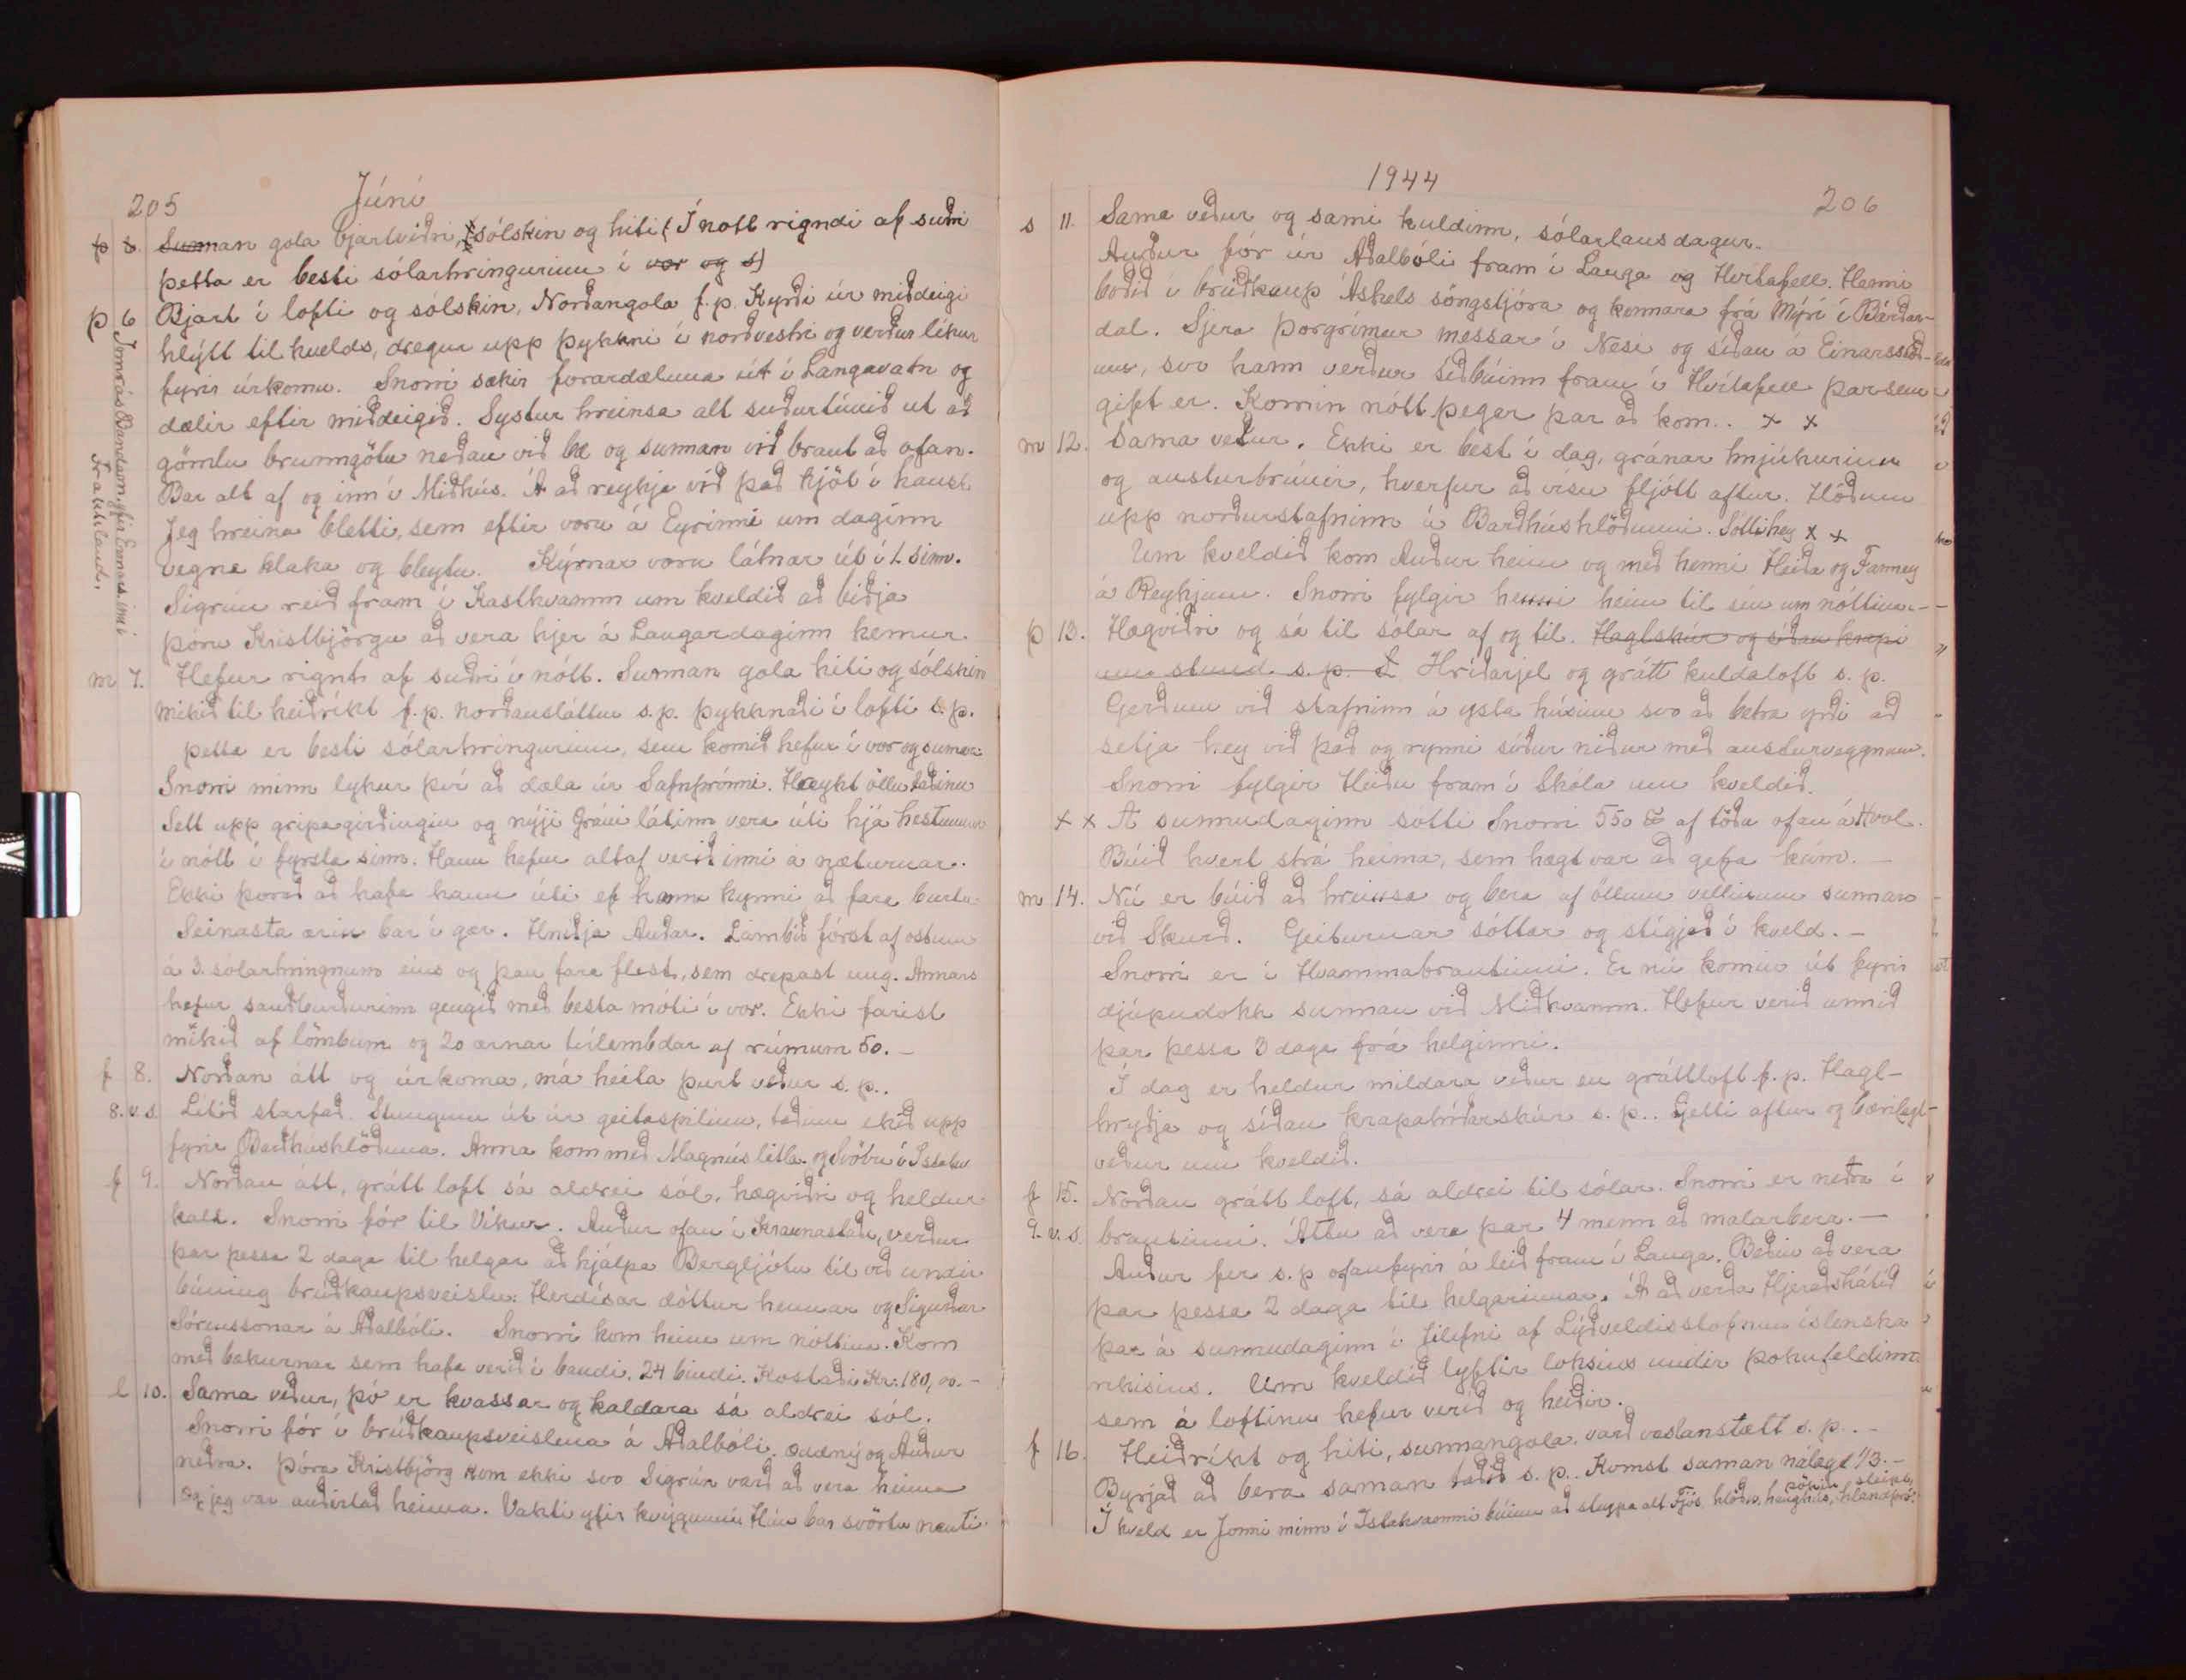 205 Júní
þ 6. Sunnan gola bjartviðri, sólskin og hiti (Í nótt rigndi af suðri
þetta er besti sólarhringurinn í vor og s)
þ 6 Bjart í lofti og sólskin, Norðangola f.p. Kyrði úr miðdeigi
hlýtt til kvelds, dregur upp þykkni í norðvestri og verður líkur
fyrir úrkomu. Snorri sækir forardæluna út í Langavatn og
dælir eftir miðdeigið. Systur hreinsa alt suðurtúnið út að
gömlu brunngötu neðan við bæ og sunnan við braut að ofan.
Bar alt af og inn í Miðhús. Á að reykja við það kjöt í haust
Jeg hreina bletti, sem eftir voru á Eyrinni um daginn
vegna klaka og bleytu. Kýrnar voru látnar út í 1. sinn.
Sigrún reið fram í Kasthvamm um kveldið að biðja
Þóru Kristbjörgu að vera hjer á Laugardaginn kemur.
Innrás Bandam. yfir Ermas. inn í
Frakkland.
m 7. Hefur rignt af suðri í nótt. Sunnan gola hiti og sólskin
mikið til heiðríkt f.p. norðansláttur s.p. þykknaði í lofti s.p.
þetta er besti sólarhringurinn, sem komið hefur í vor og sumar
Snorri minn lykur því að dæla úr Safnþrónni. Hreykt öllu taðinu
Sett upp gripagirðingin og nýji Gráni látinn vera úti hjá hestunum
í nótt í fyrsta sinn. Hann hefur altaf verið inni á næturnar.
Ekki þorað að hafa hann úti ef hann kynni að fara burtu.
Seinasta ærin bar í gær. Hnidja Auðar. Lambið fórst af ostum
á 3. sólarhringnum eins og þau fara flest, sem drepast ung. Annars
hefur sauðburðurinn gengið með besta móti í vor. Ekki farist
mikið af lömbum og 20 ærnar tvílembdar af rúmum 50.-
f 8. Norðan átt og úrkoma, má heita þurt veður s.p..
8. v. s. Lítið starfað. Stungum út úr geitaspilinu, taðinu ekið upp
fyrir Barðhúshlöðuna. Anna kom með Magnús litla og Svövu í Ístahv
f 9. Norðan átt, grátt loft sá aldrei sól, hægviðri og heldur
kalt. Snorri fór til Víkur. Auður ofan í Hraunastaði, verður
þar þessa 2 daga til helgar að hjálpa Bergljótu til við undir
búning brúðkaupsveislu Herdísar dóttur hennar og Sigurðar
Sörenssonar á Aðalbóli. Snorri kom heim um nóttina. Kom
með bækurnar sem hafa verið í bandi. 24 bindi. Kostaði Kr. 180,00.-
l 10. Sama veður, þó er kvassar og kaldara sá aldrei sól.
Snorri fór í brúðkaupsveisluna á Aðalbóli. Oddný og Auður
neðra. Þóra Kristbjörg kom ekki svo Sigrún varð að vera heima
og jeg var auðvitað heima. Vakti yfir kvígunni Hún bar svörtu nauti.
1944
206
s 11. Sama veður og sami kuldinn, sólarlaus dagur.
Auður fór úr Aðalbóli fram í Lauga og Hvítafell. Henni
boðið í brúðkaup Áskels söngstjóra og kennara frá Mýri í Bárðar-
dal. Sjera Þorgrímur messar í Nesi og síðan á Einarsstöð-
um, svo hann verður síðbúinn fram í Hvítafell þar sem
gift er. Komin nótt þegar þar að kom.. x x
m 12. Sama veður. Ekki er best í dag, gránar hnjúkurinn
og austurbrúnir, hverfur að vísu fljótt aftur. Hlóðum
upp norðurstafninn á Barðhúshlöðunni. Sótti hey x x
Um kveldið kom Auður heim og með henni Heiða og Fanney
á Reykjum. Snorri fylgir henni heim til sín um nóttina.-
þ 13. Hægviðri og sá til sólar af og til. Haglskúr og síðan krapi
um stund s.p. Hríðarjel og grátt kuldaloft s.p.
Gerðum við stafninn á ysta húsinu svo að betra yrði að
setja hey við það og rynni síður niður með austurveggnum.
Snorri fylgir Heiðu fram í Skóla um kveldið.
x x Á sunnudaginn sótti Snorri 550 ℔ af töðu ofan á Hvol.
Búið hvert strá heima, sem hægt var að gefa kúm. -
m 14. Nú er búið að hreinsa og bera af öllum vellinum sunnan
við Skurð. Geiturnar sóttar og stígjað í kveld. -
Snorri er í Hvammabrautinni. Er nú komin út fyrir
djúpudokk sunnan við Miðhvamm. Hefur verið unnið
þar þessa 3 daga frá helginni.
Í dag er heldur mildara veður en gráttloft f.p. Hagl-
hryðja og síðan krapahríðarskúr s.p.. Ljetti aftur og bærilegt
veður um kveldið.
f 15. Norðan grátt loft, sá aldrei til sólar. Snorri er neðra í
9. v. s. brautinni. Áttu að vera þar 4 menn að malarbera. -
Auður fer s.p ofanfyrir á leið fram í Lauga. Beðin að vera
þar þessa 2 daga til helgarinnar. Á að verða Hjeraðshátíð
þar á sunnudaginn í tilefni af Lýðveldisstofnun íslenska
ríkisins. Um kveldið lyftir loksins undir þokufeldinn
sem á loftinu hefur verið og heiðir.
f 16. Heiðríkt og hiti, sunnangola. varð vaslanstætt s.p..-
Byrjað að bera saman taðið s.p.. Komst saman nálægt 1/3.-
Í kveld er Jonni minn í Ístahvammi búinn að steypa alt Fjós, hlöðu, haughús, hlandþró.